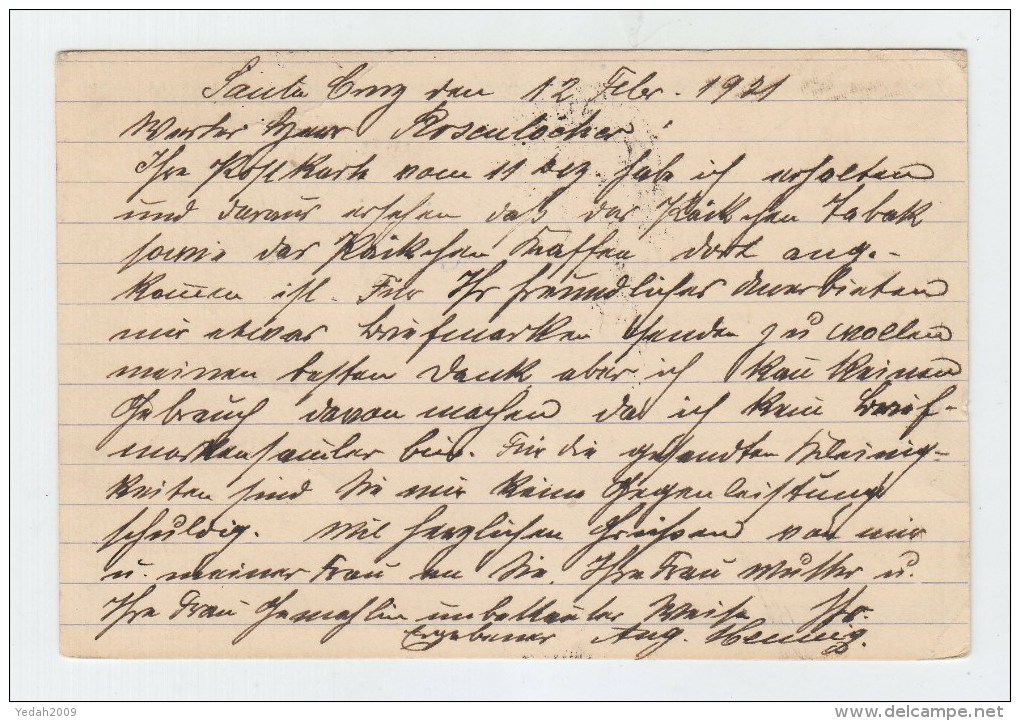 Santa Cruz den 12 Febr. 1921
Werter Herr Rosenlöcher!
Ihre Postkarte vom 11 Dez. habe ich erhalten
und daraus ersehen daß das Päckchen Tabak
sowie das Päckchen Kaffee dort ange-
kommen ist. Für Ihr freundliches Anerbieten
mir etwas Briefmarken senden zu wollen
meinen besten Dank, aber ich kan keinen
Gebrauch davon machen da ich kein Brief-
markensamler bin. Für die gesandten Kleinig-
keiten sind Sie mir keine Gegenleistung
schuldig. Mit herzlichen Grüssen von mir
u. meiner Frau an Sie, Ihre Frau Mutter u.
Ihre Frau Gemahlin unbekannter Weise Ihr
Ergebener Aug. Hennig.
Yedah2009
www.delcampe.net